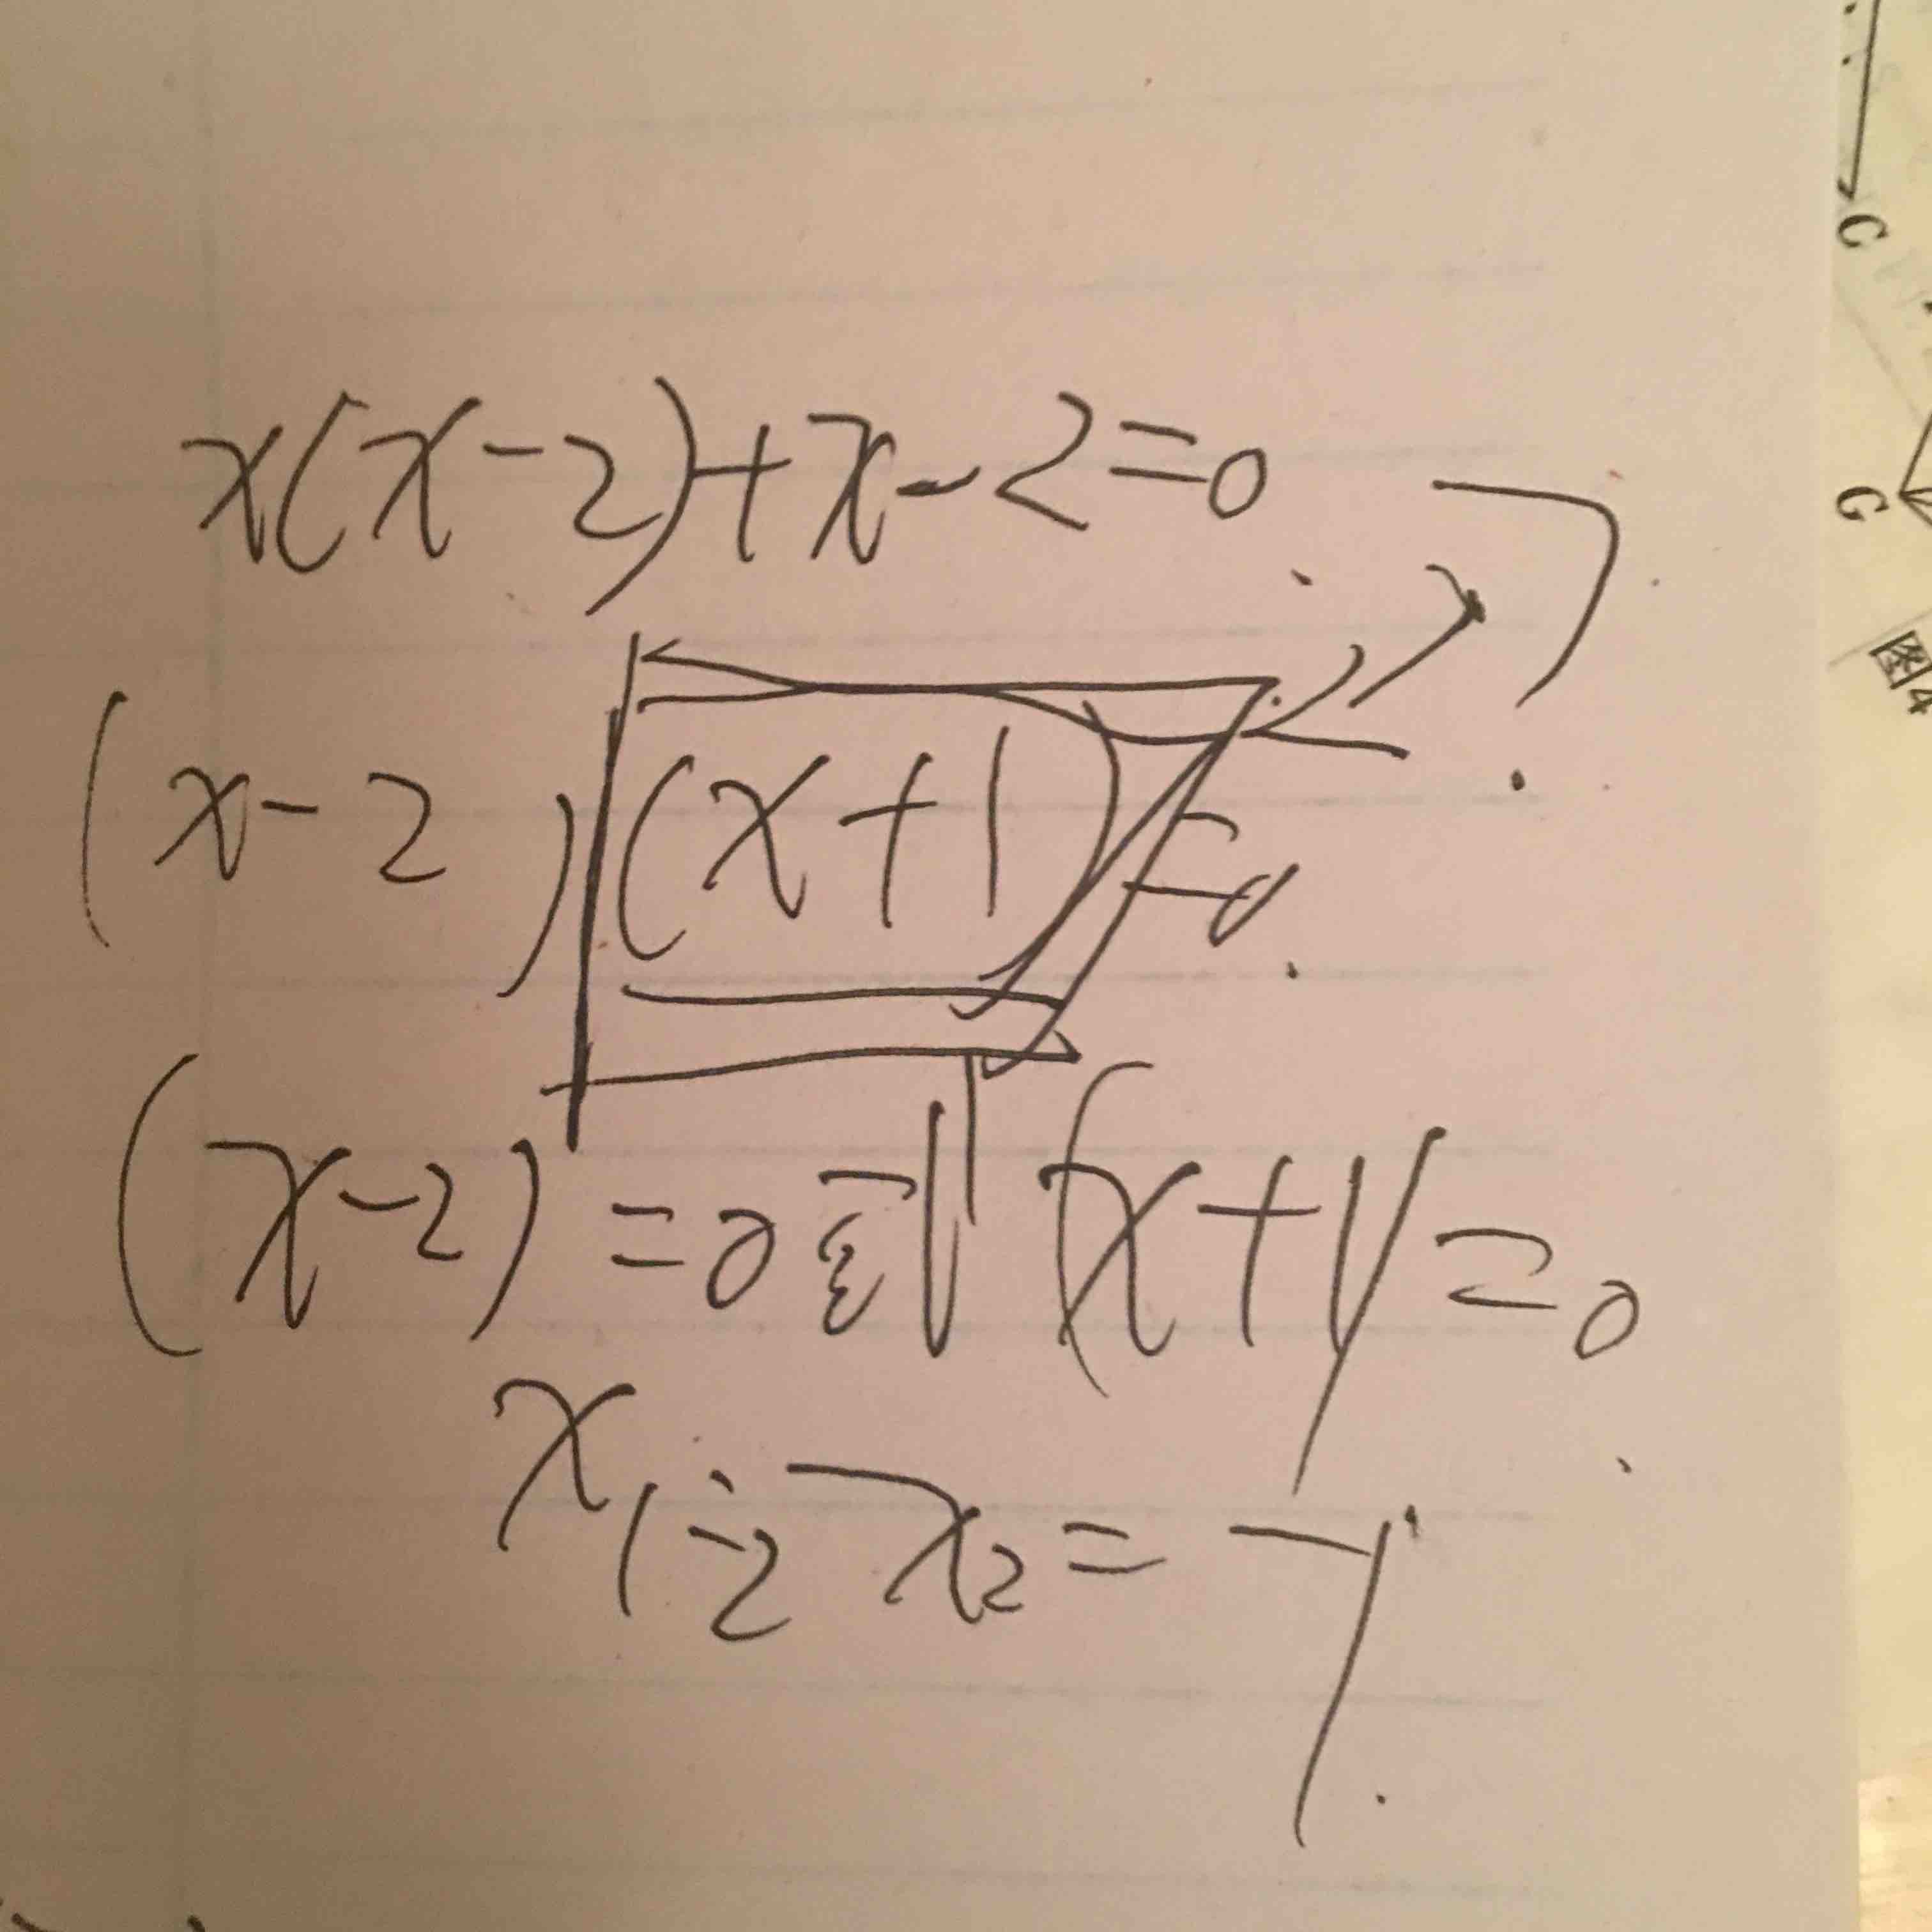 x(x-2)+x-2=0
(x-2)(x+1)=0
?
(x-2)=0 (x+1)=0
x₁=2 x₂=-1
C
G
图4